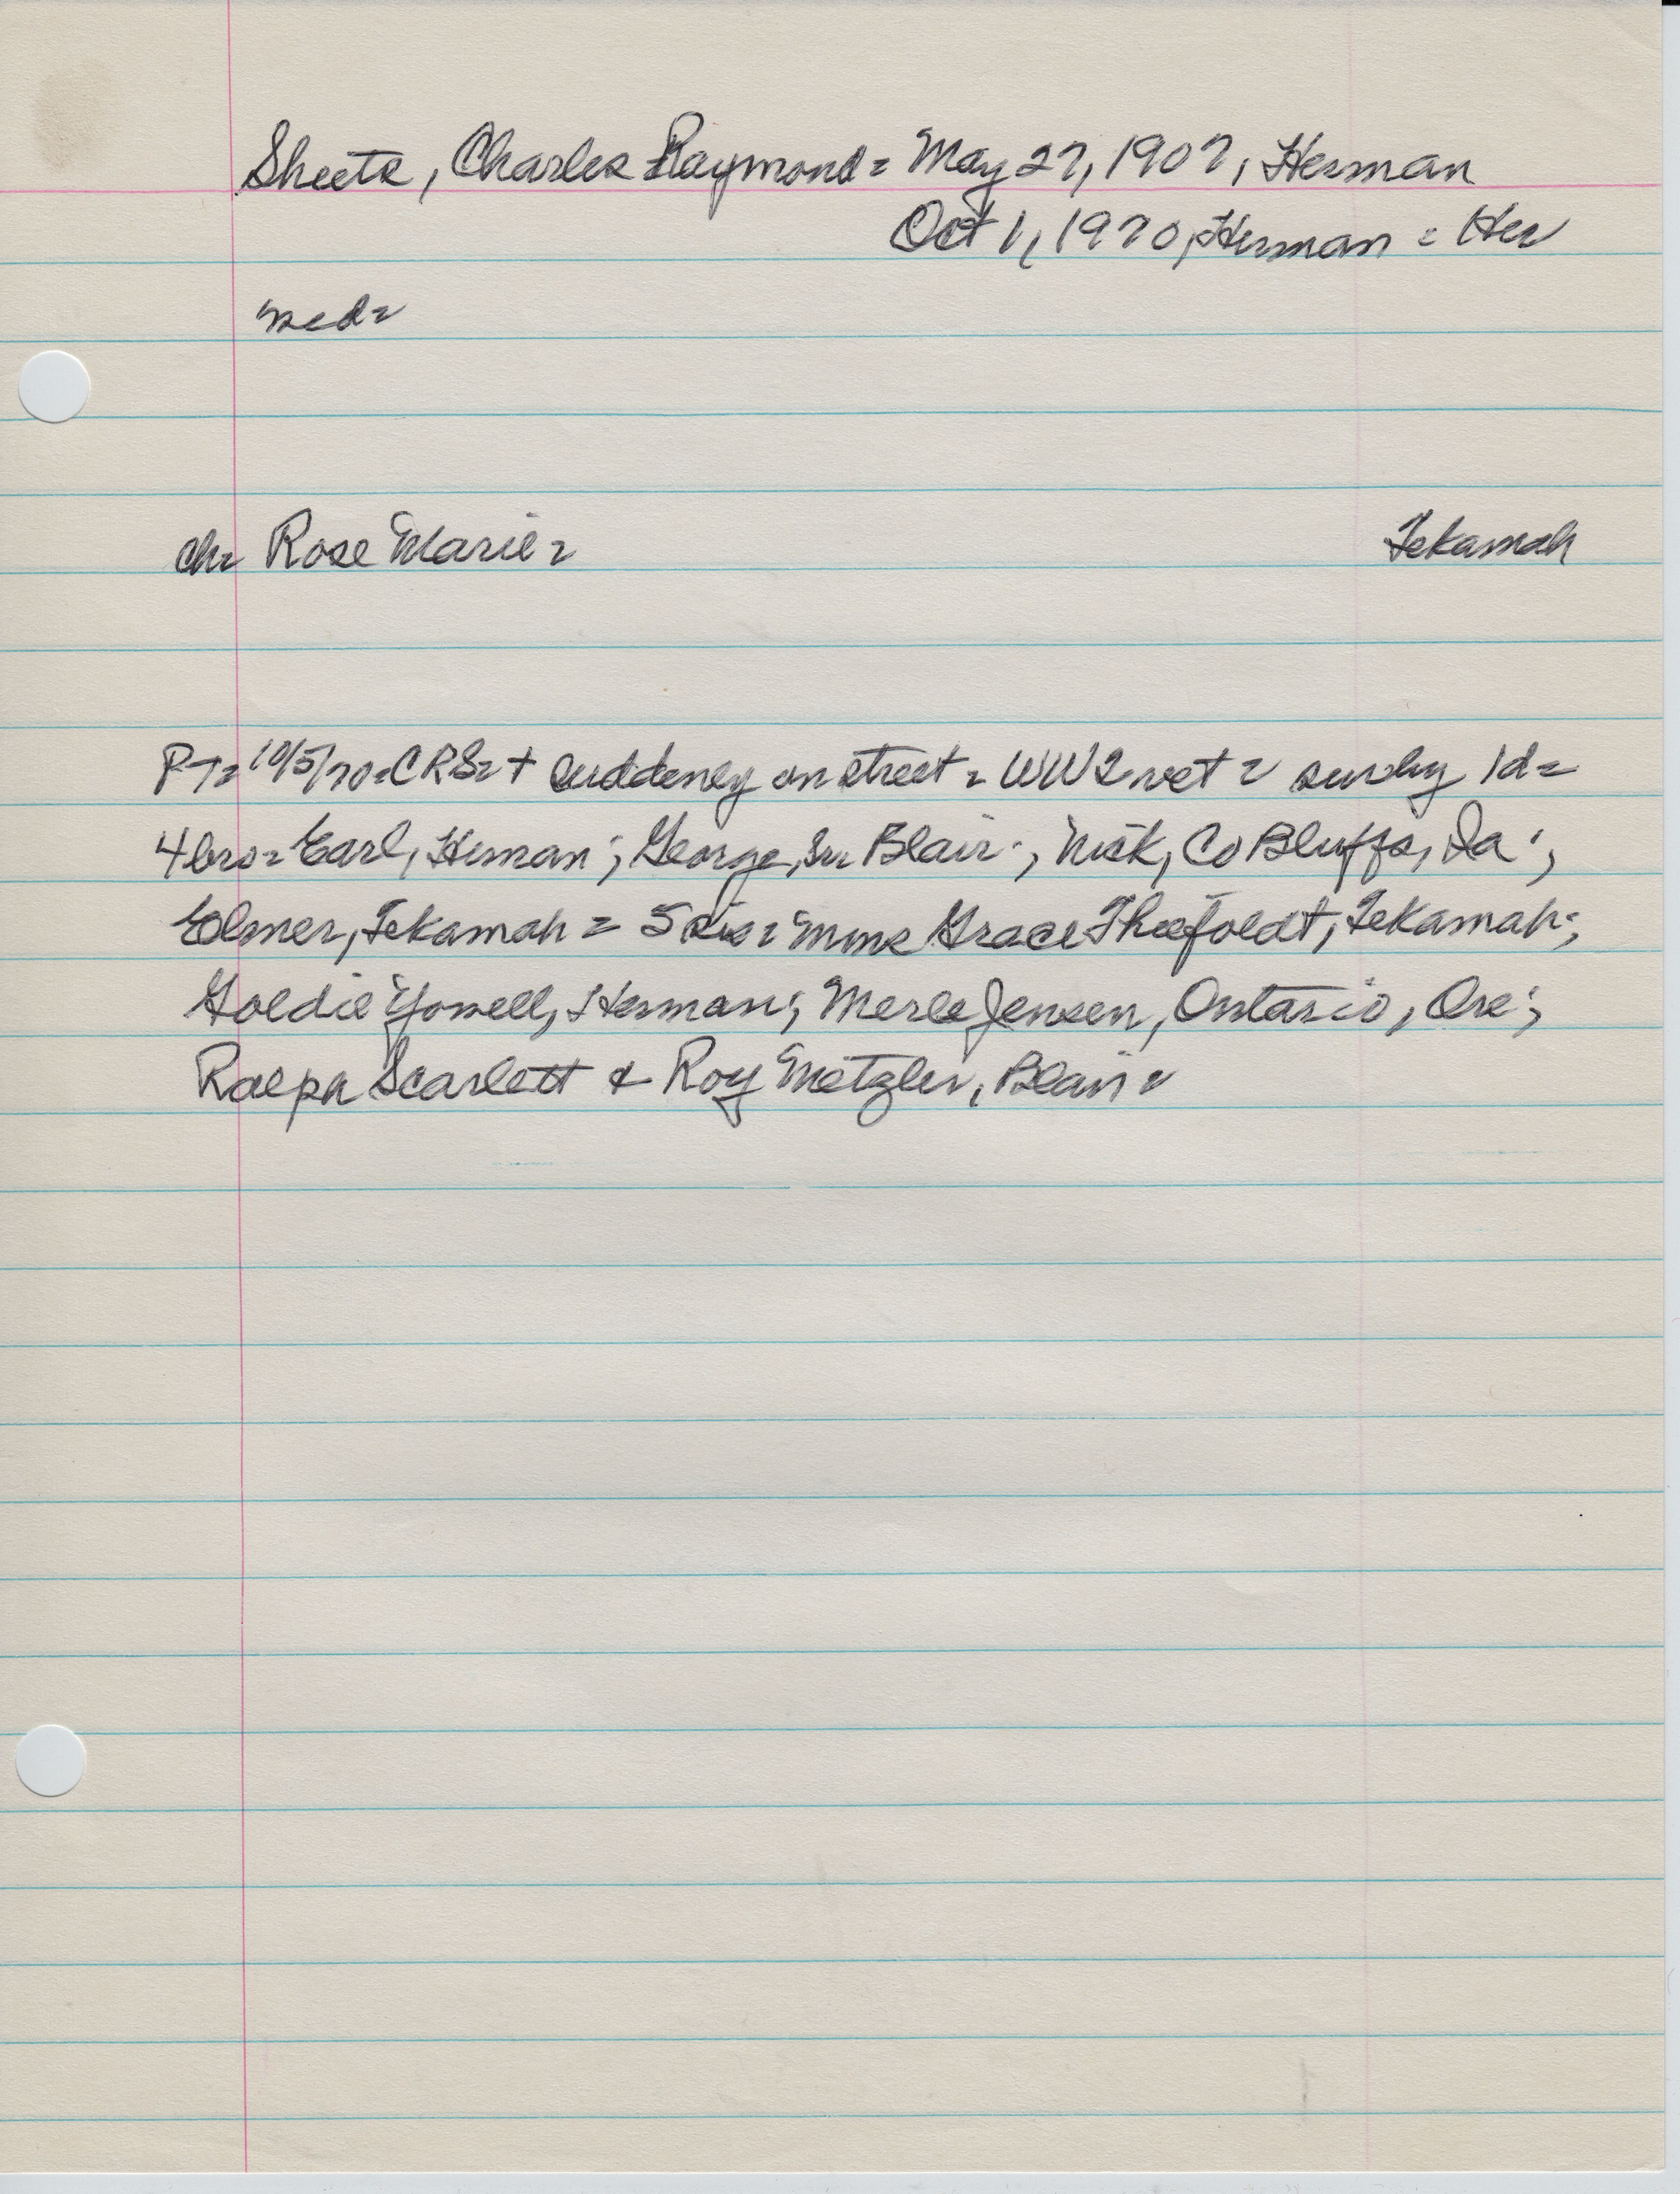 Sheets, Charles Raymond = May 27, 1907, Herman
Oct 1, 1970, Herman = Her
med =
ch = Rose Marie = Tekamah
PT = 10/5/70 = CRS = + suddenly on street = WW2 vet = survby 1d =
4 bro = Earl, Herman; George, Sr. Blair; Nick, Co Bluffs, Ia;
Elmer, Tekamah = 5 sis = Mms Grace, Tekamah;
Goldie Yowell, Herman; Merle Jensen, Ontario, Ore;
Ralph Scarlett & Roy Metzler, Blair =